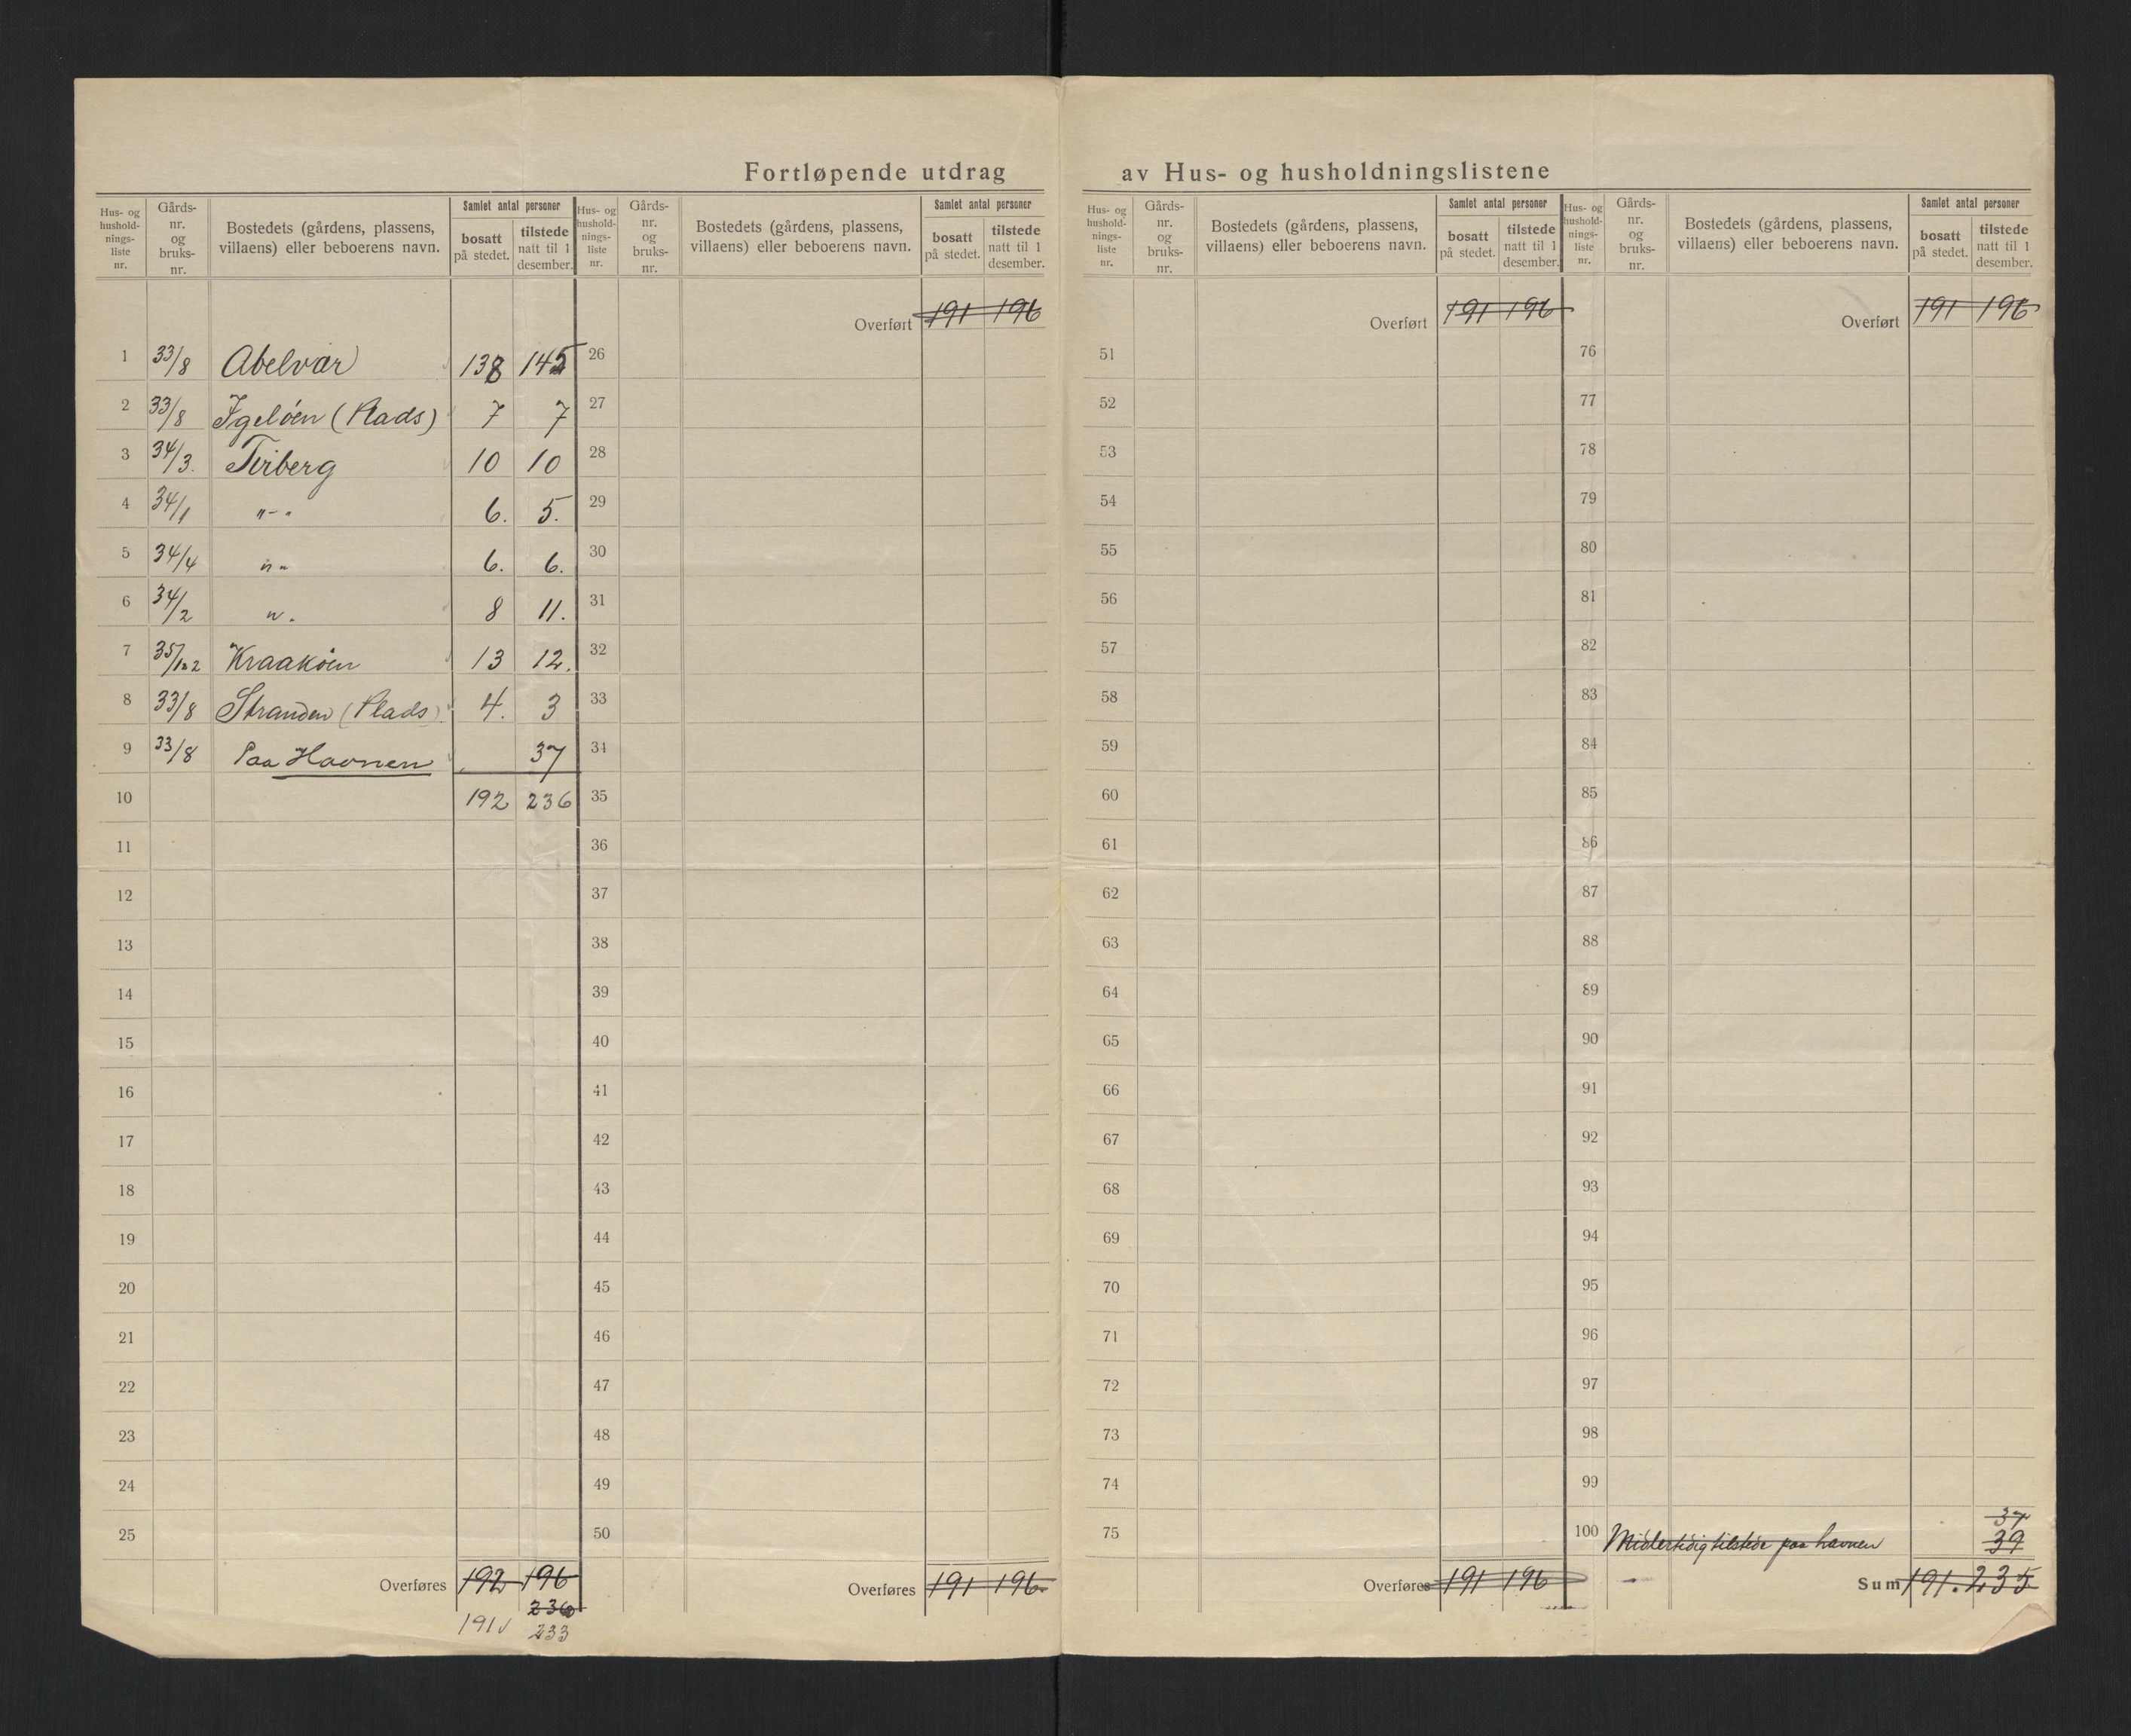 Fortløpende utdrag av Hus- og husholdningslistene
Hus- og
hushold-
nings-
liste
nr.
Gårds-
nr.
og
bruks-
nr.
Bostedets (gårdens, plassens,
villaens) eller beboerens navn.
Samlet antal personer
bosatt
på stedet.
tilstede
natt til 1
desember.
1 33/8 Abelvær 138 145
2 33/8 Igeløen (Plads) 7 7
3 34/3. Tirberg 10 10
4 34/1 "-" 6. 5.
5 34/4 "-" 6. 6.
6 34/2 ". 8 11.
7 35/1&2 Kraakøen 13 12.
8 33/8 Stranden (Plads) 4. 3
9 33/8 Paa Havnen 37
10 192 236
11
12
13
14
15
16
17
18
19
20
21
22
23
24
25
Overføres 192 196
236
191 233
Hus- og
hushold-
nings-
liste
nr.
Gårds-
nr.
og
bruks-
nr.
Bostedets (gårdens, plassens,
villaens) eller beboerens navn.
Samlet antal personer
bosatt
på stedet.
tilstede
natt til 1
desember.
Overført 191 196
26
27
28
29
30
31
32
33
34
35
36
37
38
39
40
41
42
43
44
45
46
47
48
49
50
Overføres 191 196
Hus- og
hushold-
nings-
liste
nr.
Gårds-
nr.
og
bruks-
nr.
Bostedets (gårdens, plassens,
villaens) eller beboerens navn.
Samlet antal personer
bosatt
på stedet.
tilstede
natt til 1
desember.
Overført 191 196
51
52
53
54
55
56
57
58
59
60
61
62
63
64
65
66
67
68
69
70
71
72
73
74
75
Overføres 191 196
Hus- og
hushold-
nings-
liste
nr.
Gårds-
nr.
og
bruks-
nr.
Bostedets (gårdens, plassens,
villaens) eller beboerens navn.
Samlet antal personer
bosatt
på stedet.
tilstede
natt til 1
desember.
Overført 191 196
76
77
78
79
80
81
82
83
84
85
86
87
88
89
90
91
92
93
94
95
96
97
98
99
37
100 Midlertidig tilstede paa havnen 39
Sum 191. 235